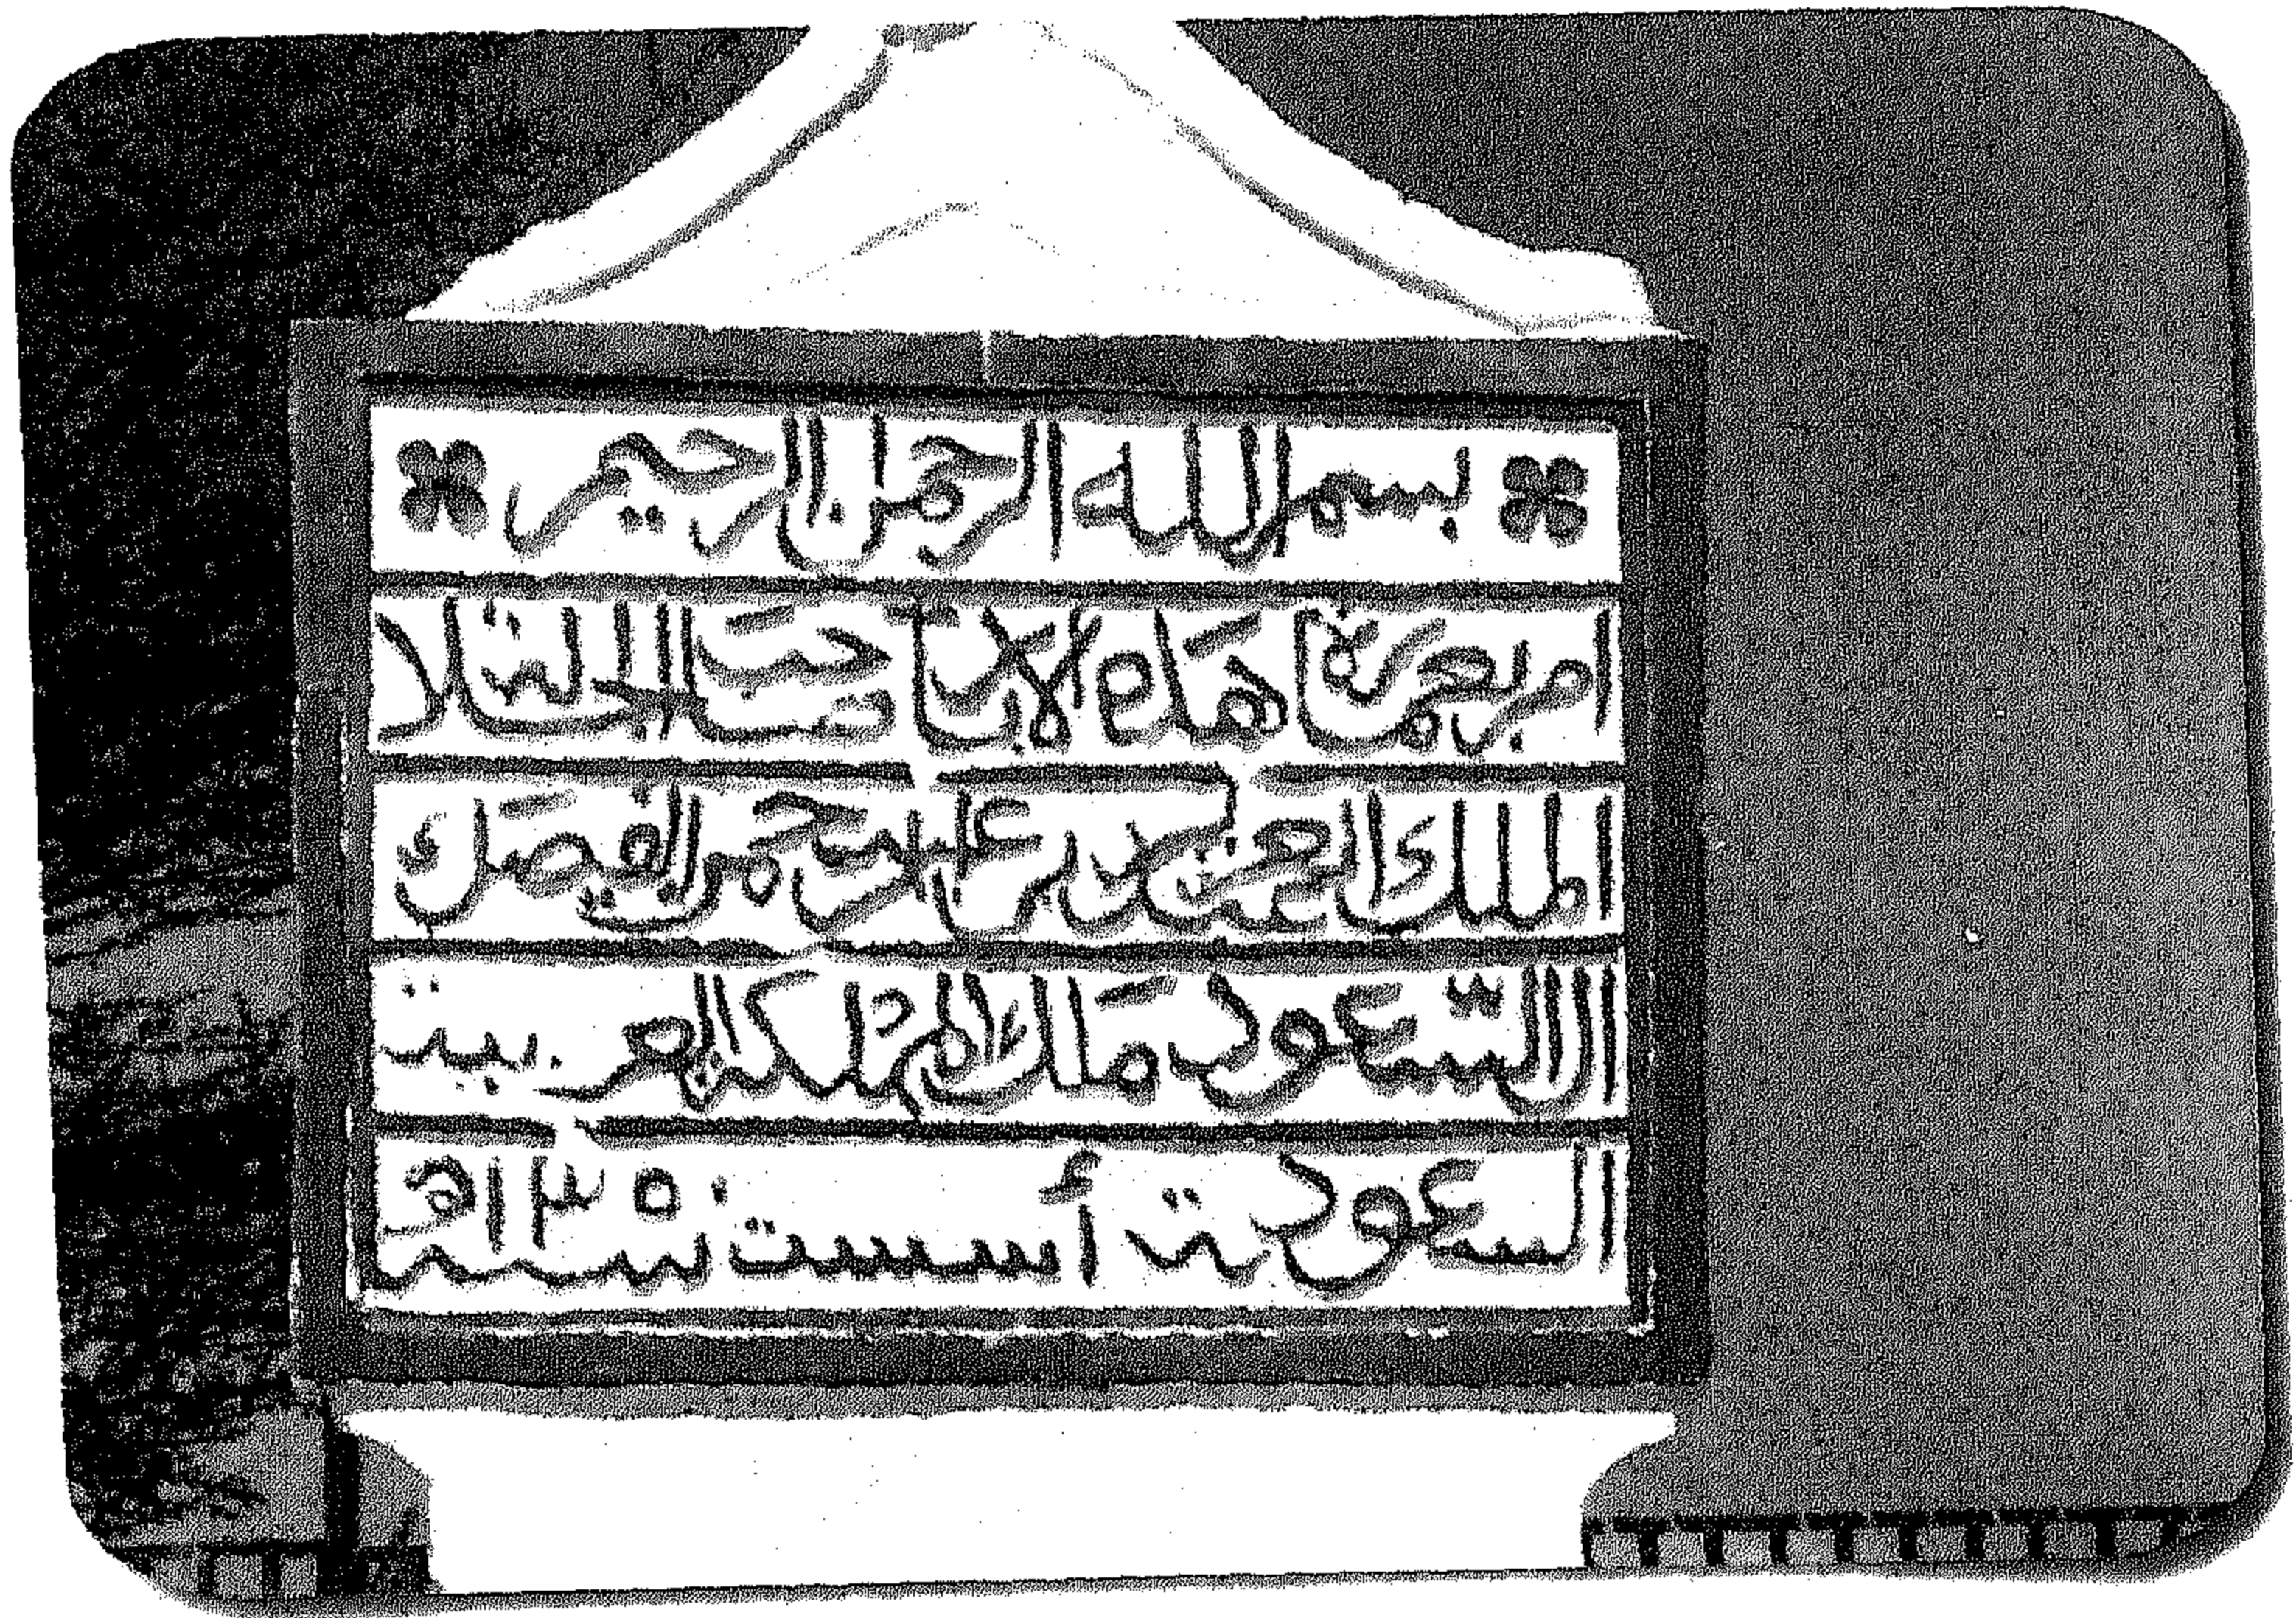 بسم الله الرحمن الرحيم
امر بعمارة صاحب الجلالة
الملك عبد العزيز بن عبد الرحمن الفيصل
ال السعود ملك المملكة العربية
السعودية أسست سنة ١٣٥٠ هـ